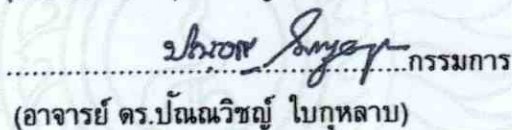 กรรมการ
(อาจารย์ ดร.ปัณณวิชญ์ ใบกุหลาบ)